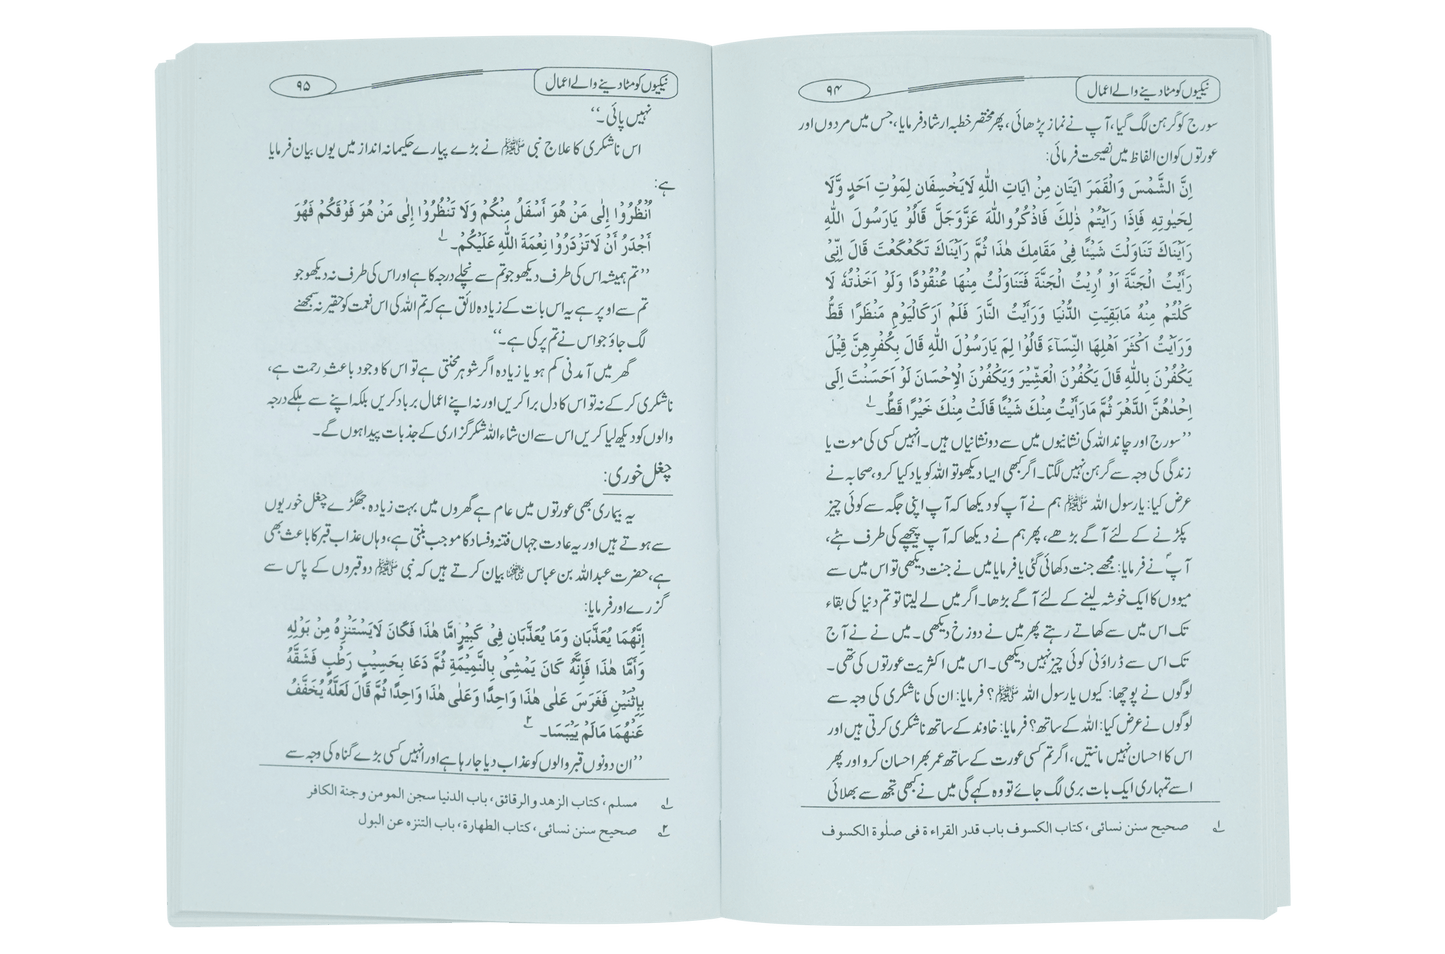 نیکیوں کو مٹا دینے والے اعمال
۹۴
سورج کو گرہن لگ گیا، آپ نے نماز پڑھائی، پھر مختصر خطبہ ارشاد فرمایا، جس میں مردوں اور
عورتوں کو ان الفاظ میں نصیحت فرمائی:
اِنَّ الشَّمْسَ وَالْقَمَرَ اٰيَتَانِ مِنْ اٰيَاتِ اللّٰهِ لَايَخْسِفَانِ لِمَوْتِ اَحَدٍ وَّلَا
لِحَيٰوتِهٖ فَاِذَا رَاَيْتُمْ ذٰلِكَ فَاذْكُرُواللّٰهَ عَزَّوَجَلَّ قَالُوْ يَارَسُوْلَ اللّٰهِ
رَاَيْنَاكَ تَنَاوَلْتَ شَيْئًا فِىْ مَقَامِكَ هٰذَا ثُمَّ رَاَيْنَاكَ تَكَعْكَعْتَ قَالَ اِنِّىْ
رَاَيْتُ الْجَنَّةَ اَوْ اُرِيْتُ الْجَنَّةَ فَتَنَاوَلْتُ مِنْهَا عُنْقُوْدًا وَلَوْ اَخَذْتُهٗ لَا
كَلْتُمْ مِنْهُ مَابَقِيَتِ الدُّنْيَا وَرَاَيْتُ النَّارَ فَلَمْ اَرَكَالْيَوْمِ مَنْظَرًا قَطُّ
وَرَاَيْتُ اَكْثَرَ اَهْلِهَا النِّسَآءَ قَالُوْا لِمَ يَارَسُوْلَ اللّٰهِ قَالَ بِكُفْرِهِنَّ قِيْلَ
يَكْفُرْنَ بِاللّٰهِ قَالَ يَكْفُرْنَ الْعَشِيْرَ وَيَكْفُرْنَ الْاِحْسَانَ لَوْ اَحْسَنْتَ اِلٰى
اِحْدٰهُنَّ الدَّهْرَ ثُمَّ مَارَاَيْتُ مِنْكَ شَيْئًا قَالَتْ مِنْكَ خَيْرًا قَطُّ۔ ۱
’’سورج اور چاند اللہ کی نشانیوں میں سے دو نشانیاں ہیں۔ انہیں کسی کی موت یا
زندگی کی وجہ سے گرہن نہیں لگتا۔ اگر کبھی ایسا دیکھو تو اللہ کو یاد کیا کرو، صحابہ نے
عرض کیا: یارسول اللہ ﷺ ہم نے آپ کو دیکھا کہ آپ اپنی جگہ سے کوئی چیز
پکڑنے کے لئے آگے بڑھے، پھر ہم نے دیکھا کہ آپ پیچھے کی طرف ہٹے،
آپ نے فرمایا: مجھے جنت دکھائی گئی یا فرمایا میں نے جنت دیکھی تو اس میں سے
میووں کا ایک خوشہ لینے کے لئے آگے بڑھا۔ اگر میں لے لیتا تو تم دنیا کی بقاء
تک اس میں سے کھاتے رہتے پھر میں نے دوزخ دیکھی۔ میں نے نے آج
تک اس سے ڈراؤنی کوئی چیز نہیں دیکھی۔ اس میں اکثریت عورتوں کی تھی۔
لوگوں نے پوچھا: کیوں یارسول اللہ ﷺ؟ فرمایا: ان کی ناشکری کی وجہ سے
لوگوں نے عرض کیا: اللہ کے ساتھ؟ فرمایا: خاوند کے ساتھ ناشکری کرتی ہیں اور
اس کا احسان نہیں مانتیں، اگر تم کسی عورت کے ساتھ عمر بھر احسان کرو اور پھر
اسے تمہاری ایک بات بری لگ جائے تو وہ کہے گی میں نے کبھی تجھ سے بھلائی
۱ صحیح سنن نسائی، کتاب الکسوف باب قدر القراءة فی صلٰوة الکسوف
نیکیوں کو مٹا دینے والے اعمال
۹۵
نہیں پائی۔‘‘
اس ناشکری کا علاج نبی ﷺ نے بڑے پیارے حکیمانہ انداز میں یوں بیان فرمایا
ہے:
اُنْظُرُوْا اِلٰى مَنْ هُوَ اَسْفَلُ مِنْكُمْ وَلَا تَنْظُرُوْا اِلٰى مَنْ هُوَ فَوْقَكُمْ فَهُوَ
اَجْدَرُ اَنْ لَاتَزْدَرُوْا نِعْمَةَ اللّٰهِ عَلَيْكُمْ۔ ۱
’’تم ہمیشہ اس کی طرف دیکھو جو تم سے نچلے درجہ کا ہے اور اس کی طرف نہ دیکھو جو
تم سے اوپر ہے یہ اس بات کے زیادہ لائق ہے کہ تم اللہ کی اس نعمت کو حقیر نہ سمجھنے
لگ جاؤ جو اس نے تم پر کی ہے۔‘‘
گھر میں آمدنی کم ہو یا زیادہ اگر شوہر محنتی ہے تو اس کا وجود باعثِ رحمت ہے،
ناشکری کر کے نہ تو اس کا دل برا کریں اور نہ اپنے اعمال برباد کریں بلکہ اپنے سے ہلکے درجہ
والوں کو دیکھ لیا کریں اس سے ان شاء اللہ شکرگزاری کے جذبات پیدا ہوں گے۔
چغل خوری:
یہ بیماری بھی عورتوں میں عام ہے گھروں میں بہت زیادہ جھگڑے چغل خوریوں
سے ہوتے ہیں اور یہ عادت جہاں فتنہ و فساد کا موجب بنتی ہے، وہاں عذاب قبر کا باعث بھی
ہے، حضرت عبداللہ بن عباس بیان کرتے ہیں کہ نبی ﷺ دو قبروں کے پاس سے
گزرے اور فرمایا:
اِنَّهُمَا يُعَذَّبَانِ وَمَا يُعَذَّبَانِ فِىْ كَبِيْرٍ اِمَّا هٰذَا فَكَانَ لَايَسْتَنْزِهُ مِنْ بَوْلِهٖ
وَاَمَّا هٰذَا فَاِنَّهٗ كَانَ يَمْشِىْ بِالنَّمِيْمَةِ ثُمَّ دَعَا بِحَسِيْبٍ رَطْبٍ فَشَقَّهٗ
بِاِثْنَيْنِ فَغَرَسَ عَلٰى هٰذَا وَاحِدًا وَعَلٰى هٰذَا وَاحِدًا ثُمَّ قَالَ لَعَلَّهٗ يُخَفَّفُ
عَنْهُمَا مَالَمْ يَيْبَسَا۔ ۲
’’ان دونوں قبر والوں کو عذاب دیا جا رہا ہے اور انہیں کسی بڑے گناہ کی وجہ سے
۱ مسلم، کتاب الزهد والرقائق، باب الدنیا سجن المومن وجنة الکافر
۲ صحیح سنن نسائی، کتاب الطهارة، باب التنزه عن البول